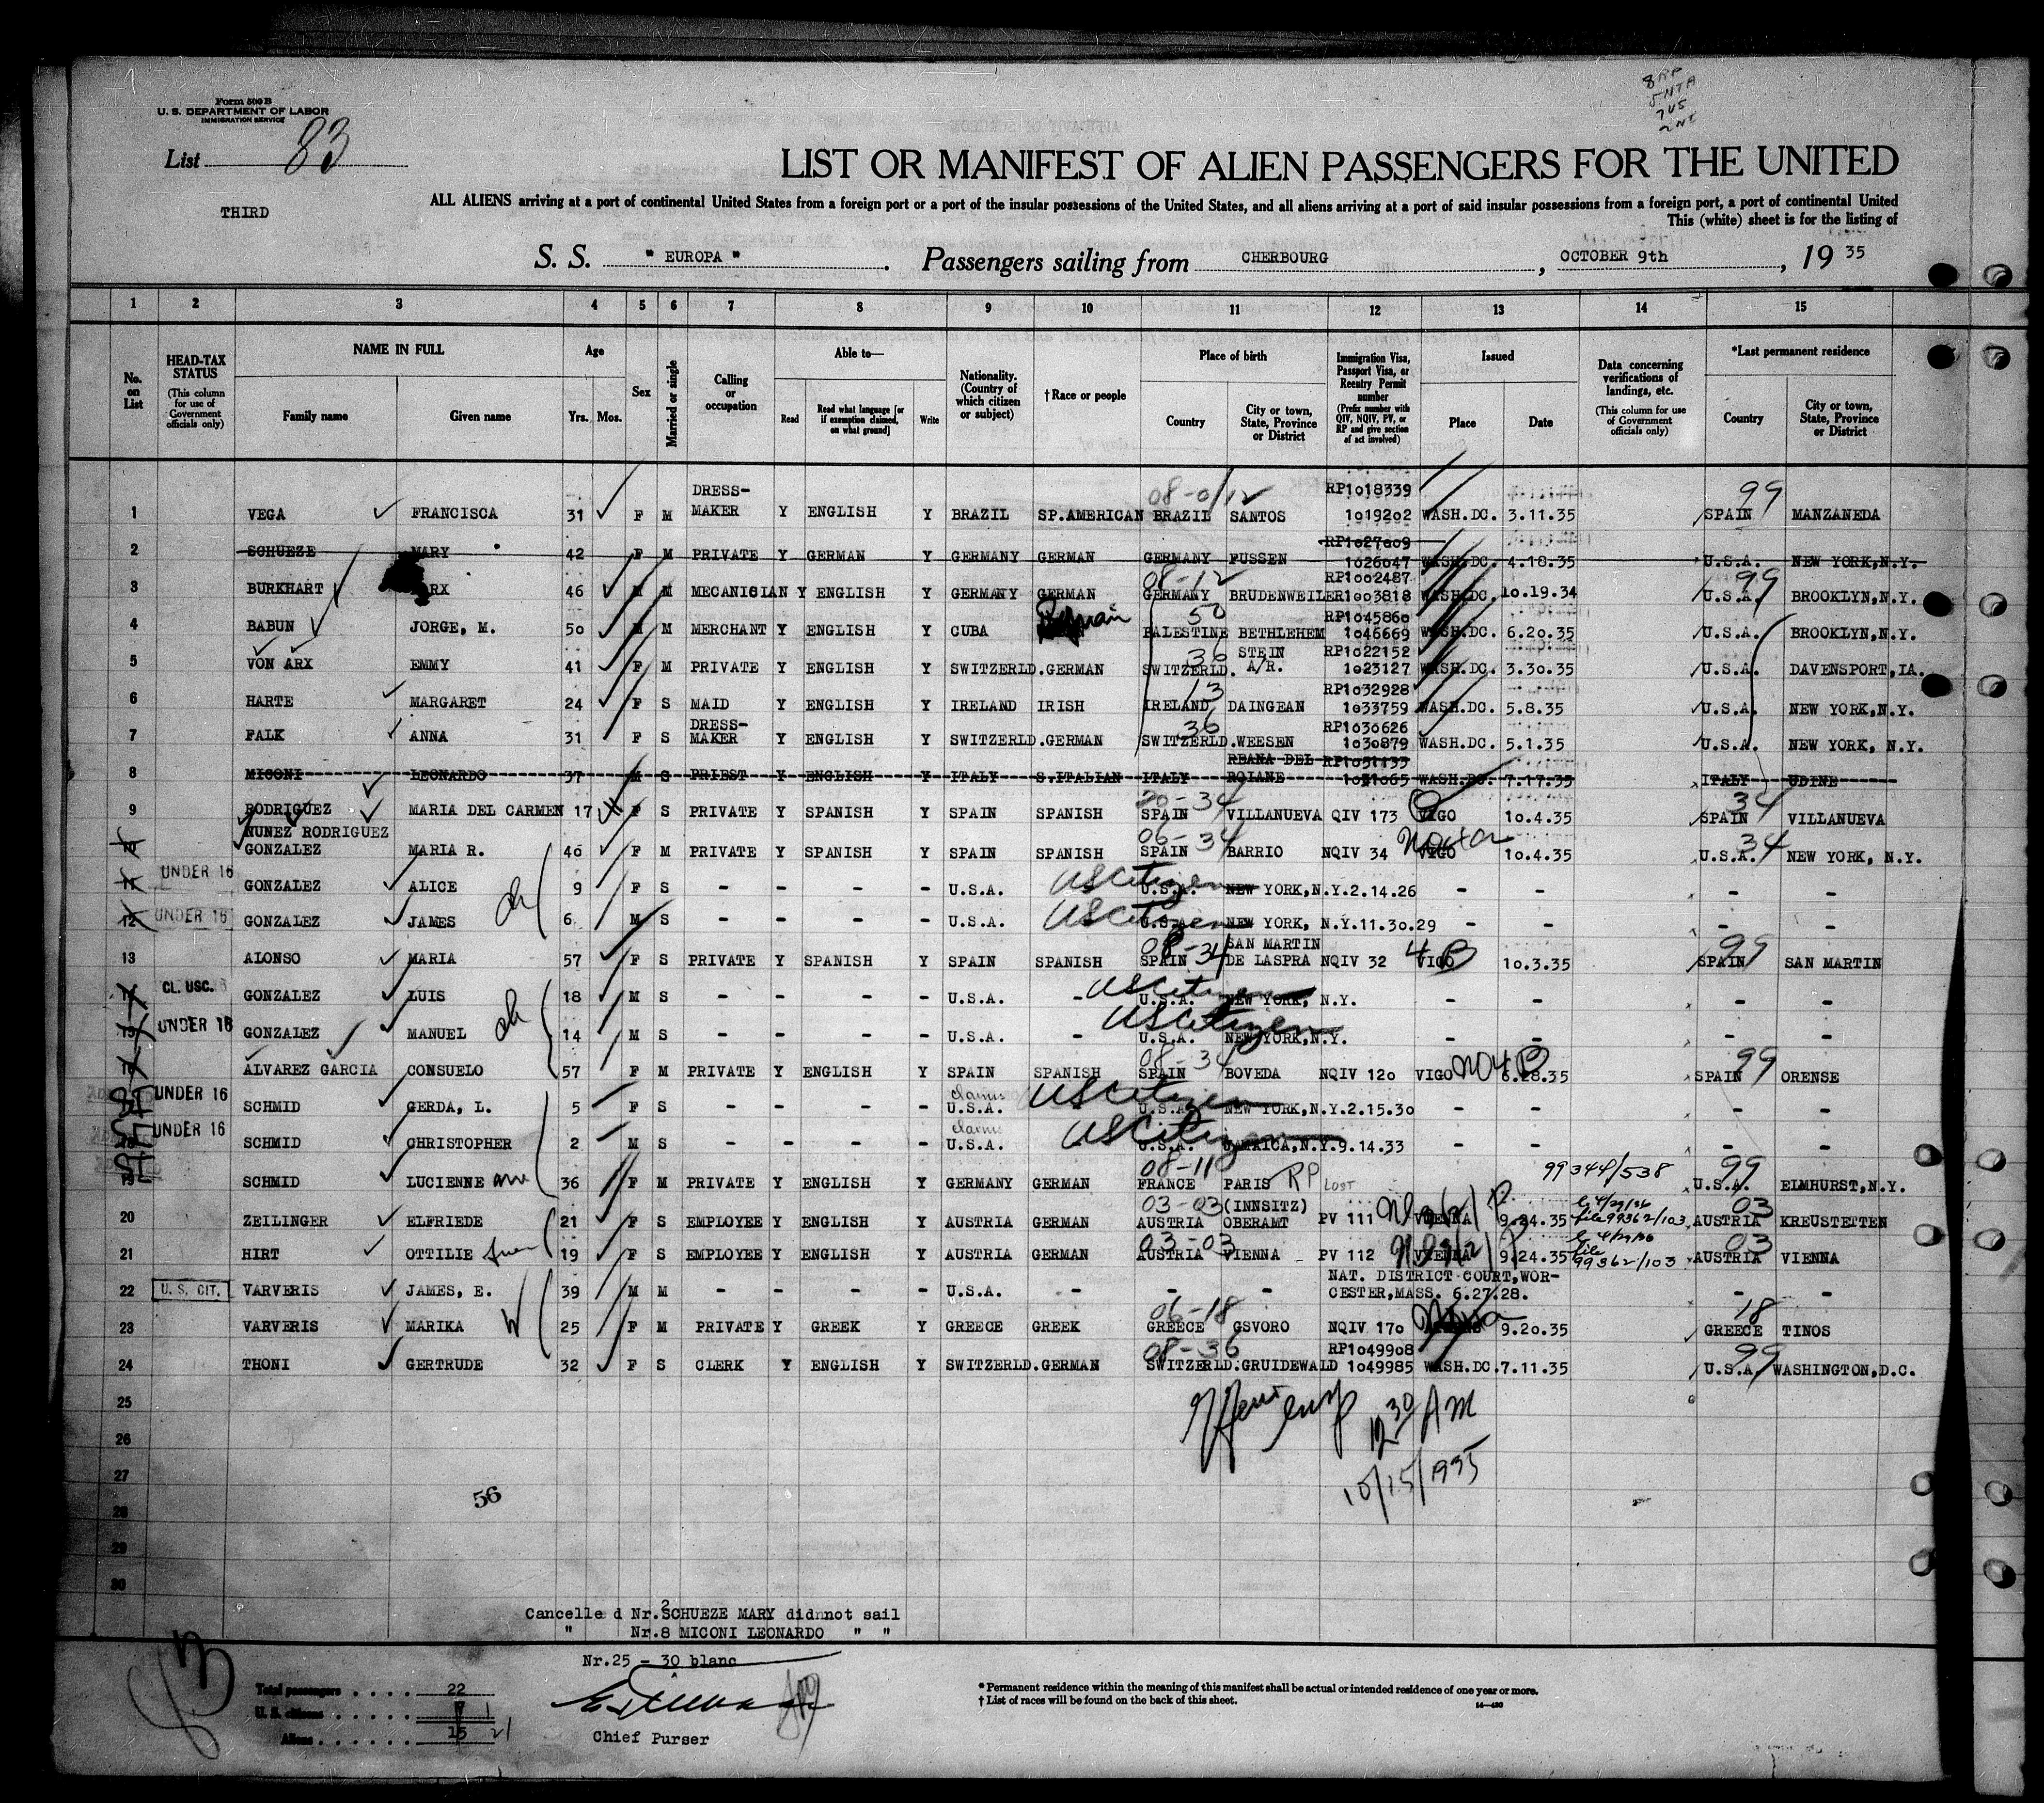 8RP
5NTA
7US
2NT
Form 500 B
U. S. DEPARTMENT OF LABOR
IMMIGRATION SERVICE
List 83
THIRD
LIST OR MANIFEST OF ALIEN PASSENGERS FOR THE UNITED
ALL ALIENS arriving at a port of continental United States from a foreign port or a port of the insular possessions of the United States, and all aliens arriving at a port of said insular possessions from a foreign port, a port of continental United
This (white) sheet is for the listing of
S. S. " EUROPA " . Passengers sailing from CHERBOURG , OCTOBER 9th , 19 35
1 2 3 4 5 6 7 8 9 10 11 12 13 14 15
No. on List
HEAD-TAX STATUS (This column for use of Government officials only)
NAME IN FULL
Family name Given name
Age
Yrs. Mos.
Sex
Married or single
Calling or occupation
Able to—
Read Read what language [or if exemption claimed, on what ground] Write
Nationality. (Country of which citizen or subject)
† Race or people
Place of birth
Country City or town, State, Province or District
Immigration Visa, Passport Visa, or Reentry Permit number (Prefix number with QIV, NQIV, PV, or RP and give section of act involved)
Issued
Place Date
Data concerning verifications of landings, etc. (This column for use of Government officials only)
*Last permanent residence
Country City or town, State, Province or District
DRESS- 08-0/12 RP1018339 99
1 VEGA FRANCISCA 31 F M MAKER Y ENGLISH Y BRAZIL SP.AMERICAN BRAZIL SANTOS 1019202 WASH.DC. 3.11.35 SPAIN MANZANEDA
RP1027009
2 SCHUEZE MARY 42 F M PRIVATE Y GERMAN Y GERMANY GERMAN GERMANY FUSSEN 1026047 WASH.DC. 4.18.35 U.S.A. NEW YORK,N.Y.
08-12 RP1002487 99
3 BURKHART ARX 46 M M MECANICIAN Y ENGLISH Y GERMANY GERMAN GERMANY BRUDENWEILER 1003818 WASH.DC. 10.19.34 U.S.A. BROOKLYN,N.Y.
50 RP1045860
4 BABUN JORGE, M. 50 M M MERCHANT Y ENGLISH Y CUBA PALESTINE BETHLEHEM 1046669 WASH.DC. 6.20.35 U.S.A. BROOKLYN,N.Y.
36 STEIN RP1022152
5 VON ARX EMMY 41 F M PRIVATE Y ENGLISH Y SWITZERLD. GERMAN SWITZERLD. A/R. 1023127 WASH.DC. 3.30.35 U.S.A. DAVENSPORT,IA.
13 RP1032928
6 HARTE MARGARET 24 F S MAID Y ENGLISH Y IRELAND IRISH IRELAND DAINGEAN 1033759 WASH.DC. 5.8.35 U.S.A. NEW YORK,N.Y.
DRESS- 36 RP1030626
7 FALK ANNA 31 F S MAKER Y ENGLISH Y SWITZERLD. GERMAN SWITZERLD. WEESEN 1030879 WASH.DC. 5.1.35 U.S.A. NEW YORK, N.Y.
REANA DEL RP1051133
8 MICONI LEONARDO 37 M S PRIEST Y ENGLISH Y ITALY S.ITALIAN ITALY ROIANE 1051065 WASH.DC. 7.17.35 ITALY UDINE
20-34 34
9 RODRIGUEZ MARIA DEL CARMEN 17 F S PRIVATE Y SPANISH Y SPAIN SPANISH SPAIN VILLANUEVA QIV 173 VIGO 10.4.35 SPAIN VILLANUEVA
NUNEZ RODRIGUEZ 06-34 34
10 GONZALEZ MARIA R. 40 F M PRIVATE Y SPANISH Y SPAIN SPANISH SPAIN BARRIO NQIV 34 VIGO 10.4.35 U.S.A. NEW YORK, N.Y.
11 UNDER 16 GONZALEZ ALICE 9 F S - - - - U.S.A. US Citizen U.S.A. NEW YORK,N.Y.2.14.26 - - - -
12 UNDER 16 GONZALEZ JAMES 6 M S - - - - U.S.A. US Citizen U.S.A. NEW YORK, N.Y.11.30.29 - - - -
08-34 SAN MARTIN 4 B 99
13 ALONSO MARIA 57 F S PRIVATE Y SPANISH Y SPAIN SPANISH SPAIN DE LASPRA NQIV 32 VIGO 10.3.35 SPAIN SAN MARTIN
14 CL. USC. GONZALEZ LUIS 18 M S - - - - U.S.A. - US Citizen U.S.A. NEW YORK, N.Y. - - - -
15 UNDER 16 GONZALEZ MANUEL 14 M S - - - - U.S.A. - US Citizen U.S.A. NEW YORK,N.Y. - - - -
08-34 no 4 B 99
16 ALVAREZ GARCIA CONSUELO 57 F M PRIVATE Y ENGLISH Y SPAIN SPANISH SPAIN BOVEDA NQIV 120 VIGO 6.28.35 SPAIN ORENSE
UNDER 16 SCHMID GERDA, L. 5 F S - - - - claims U.S.A. US Citizen U.S.A. NEW YORK,N.Y.2.15.30 - - - -
18 UNDER 16 SCHMID CHRISTOPHER 2 M S - - - - claims U.S.A. US Citizen U.S.A. JAMAICA,N.Y.9.14.33 - - - -
08-11 99
19 SCHMID LUCIENNE 36 F M PRIVATE Y ENGLISH Y GERMANY GERMAN FRANCE PARIS RP LOST 99344/538 U.S.A. ELMHURST,N.Y.
03-03 (INNSITZ) 03
20 ZEILINGER ELFRIEDE 21 F S EMPLOYEE Y ENGLISH Y AUSTRIA GERMAN AUSTRIA OBERAMT PV 111 VIENNA 9.24.35 file 99362/103 AUSTRIA KREUSTETTEN
03-03 03
21 HIRT OTTILIE 19 F S EMPLOYEE Y ENGLISH Y AUSTRIA GERMAN AUSTRIA VIENNA PV 112 VIENNA 9.24.35 file 99362/103 AUSTRIA VIENNA
NAT. DISTRICT COURT,WOR-
22 U. S. CIT. VARVERIS JAMES, E. 39 M M - - - - U.S.A. - - - CESTER,MASS. 6.27.28. - -
06-18 18
23 VARVERIS MARIKA 25 F M PRIVATE Y GREEK Y GREECE GREEK GREECE GSVORO NQIV 170 9.20.35 GREECE TINOS
08-36 RP1049908 99
24 THONI GERTRUDE 32 F S CLERK Y ENGLISH Y SWITZERLD. GERMAN SWITZERLD. GRUIDEWALD 1049985 WASH.DC. 7.11.35 U.S.A. WASHINGTON,D.C.
25
26 12 30 AM
27 10/15/1935
56
28
29
30
Cancelle d Nr. 2 SCHUEZE MARY didnnot sail
" Nr.8 MICONI LEONARDO " "
Nr.25 - 30 blanc
Total passengers 22
U. S. citizens 7 1
Aliens 15 21
Chief Purser
* Permanent residence within the meaning of this manifest shall be actual or intended residence of one year or more.
† List of races will be found on the back of this sheet.
14—430